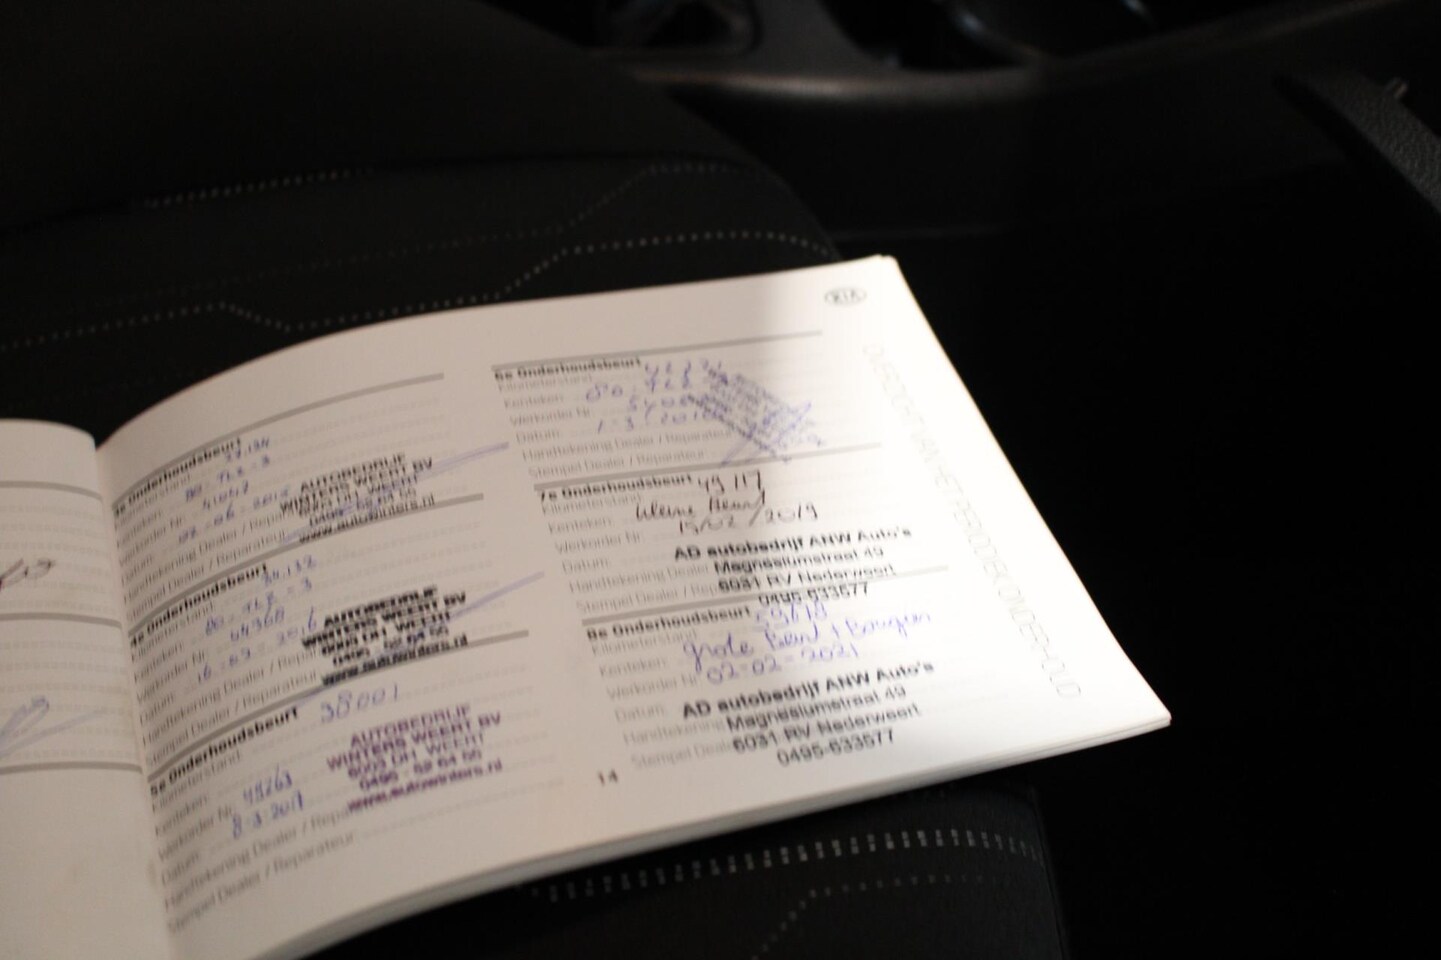 KIA
OVERZICHT VAN HET PERIODIEK ONDERHOUD
3e Onderhoudsbeurt
Kilometerstand:
Kenteken: 80-TLZ-3
Werkorder Nr.
Datum:
Handtekening Dealer / Reparateur
Stempel Dealer / Reparateur
AUTOBEDRIJF
WINTERS WEERT BV
6003 DH WEERT
0495 - 52 64 55
www.autowinters.nl
4e Onderhoudsbeurt
Kilometerstand: 34.132
Kenteken: 80-TLZ-3
Werkorder Nr. 44368
Datum: 16-02-2016
Handtekening Dealer / Reparateur
Stempel Dealer / Reparateur
AUTOBEDRIJF
WINTERS WEERT BV
6003 DH WEERT
0495 - 52 64 55
www.autowinters.nl
5e Onderhoudsbeurt
Kilometerstand: 38001
Kenteken:
Werkorder Nr. 49263
Datum: 8-3-2017
Handtekening Dealer / Reparateur
Stempel Dealer / Reparateur
AUTOBEDRIJF
WINTERS WEERT BV
6003 DH WEERT
0495 - 52 64 55
www.autowinters.nl
6e Onderhoudsbeurt
Kilometerstand:
Kenteken: 80-TLZ
Werkorder Nr.
Datum:
Handtekening Dealer / Reparateur
Stempel Dealer / Reparateur
7e Onderhoudsbeurt
Kilometerstand: 49117
Kenteken: kleine Beurt
Werkorder Nr. /02/2019
Datum:
Handtekening Dealer
Stempel Dealer / Rep
AD autobedrijf ANW Auto's
Magnesiumstraat 49
6031 RV Nederweert
0495-633577
8e Onderhoudsbeurt
Kilometerstand: 59618
Kenteken: grote Beurt + Bougies
Werkorder Nr. 02-02-2021
Datum:
Handtekening
Stempel Deale
AD autobedrijf ANW Auto's
Magnesiumstraat 49
6031 RV Nederweert
0495-633577
14